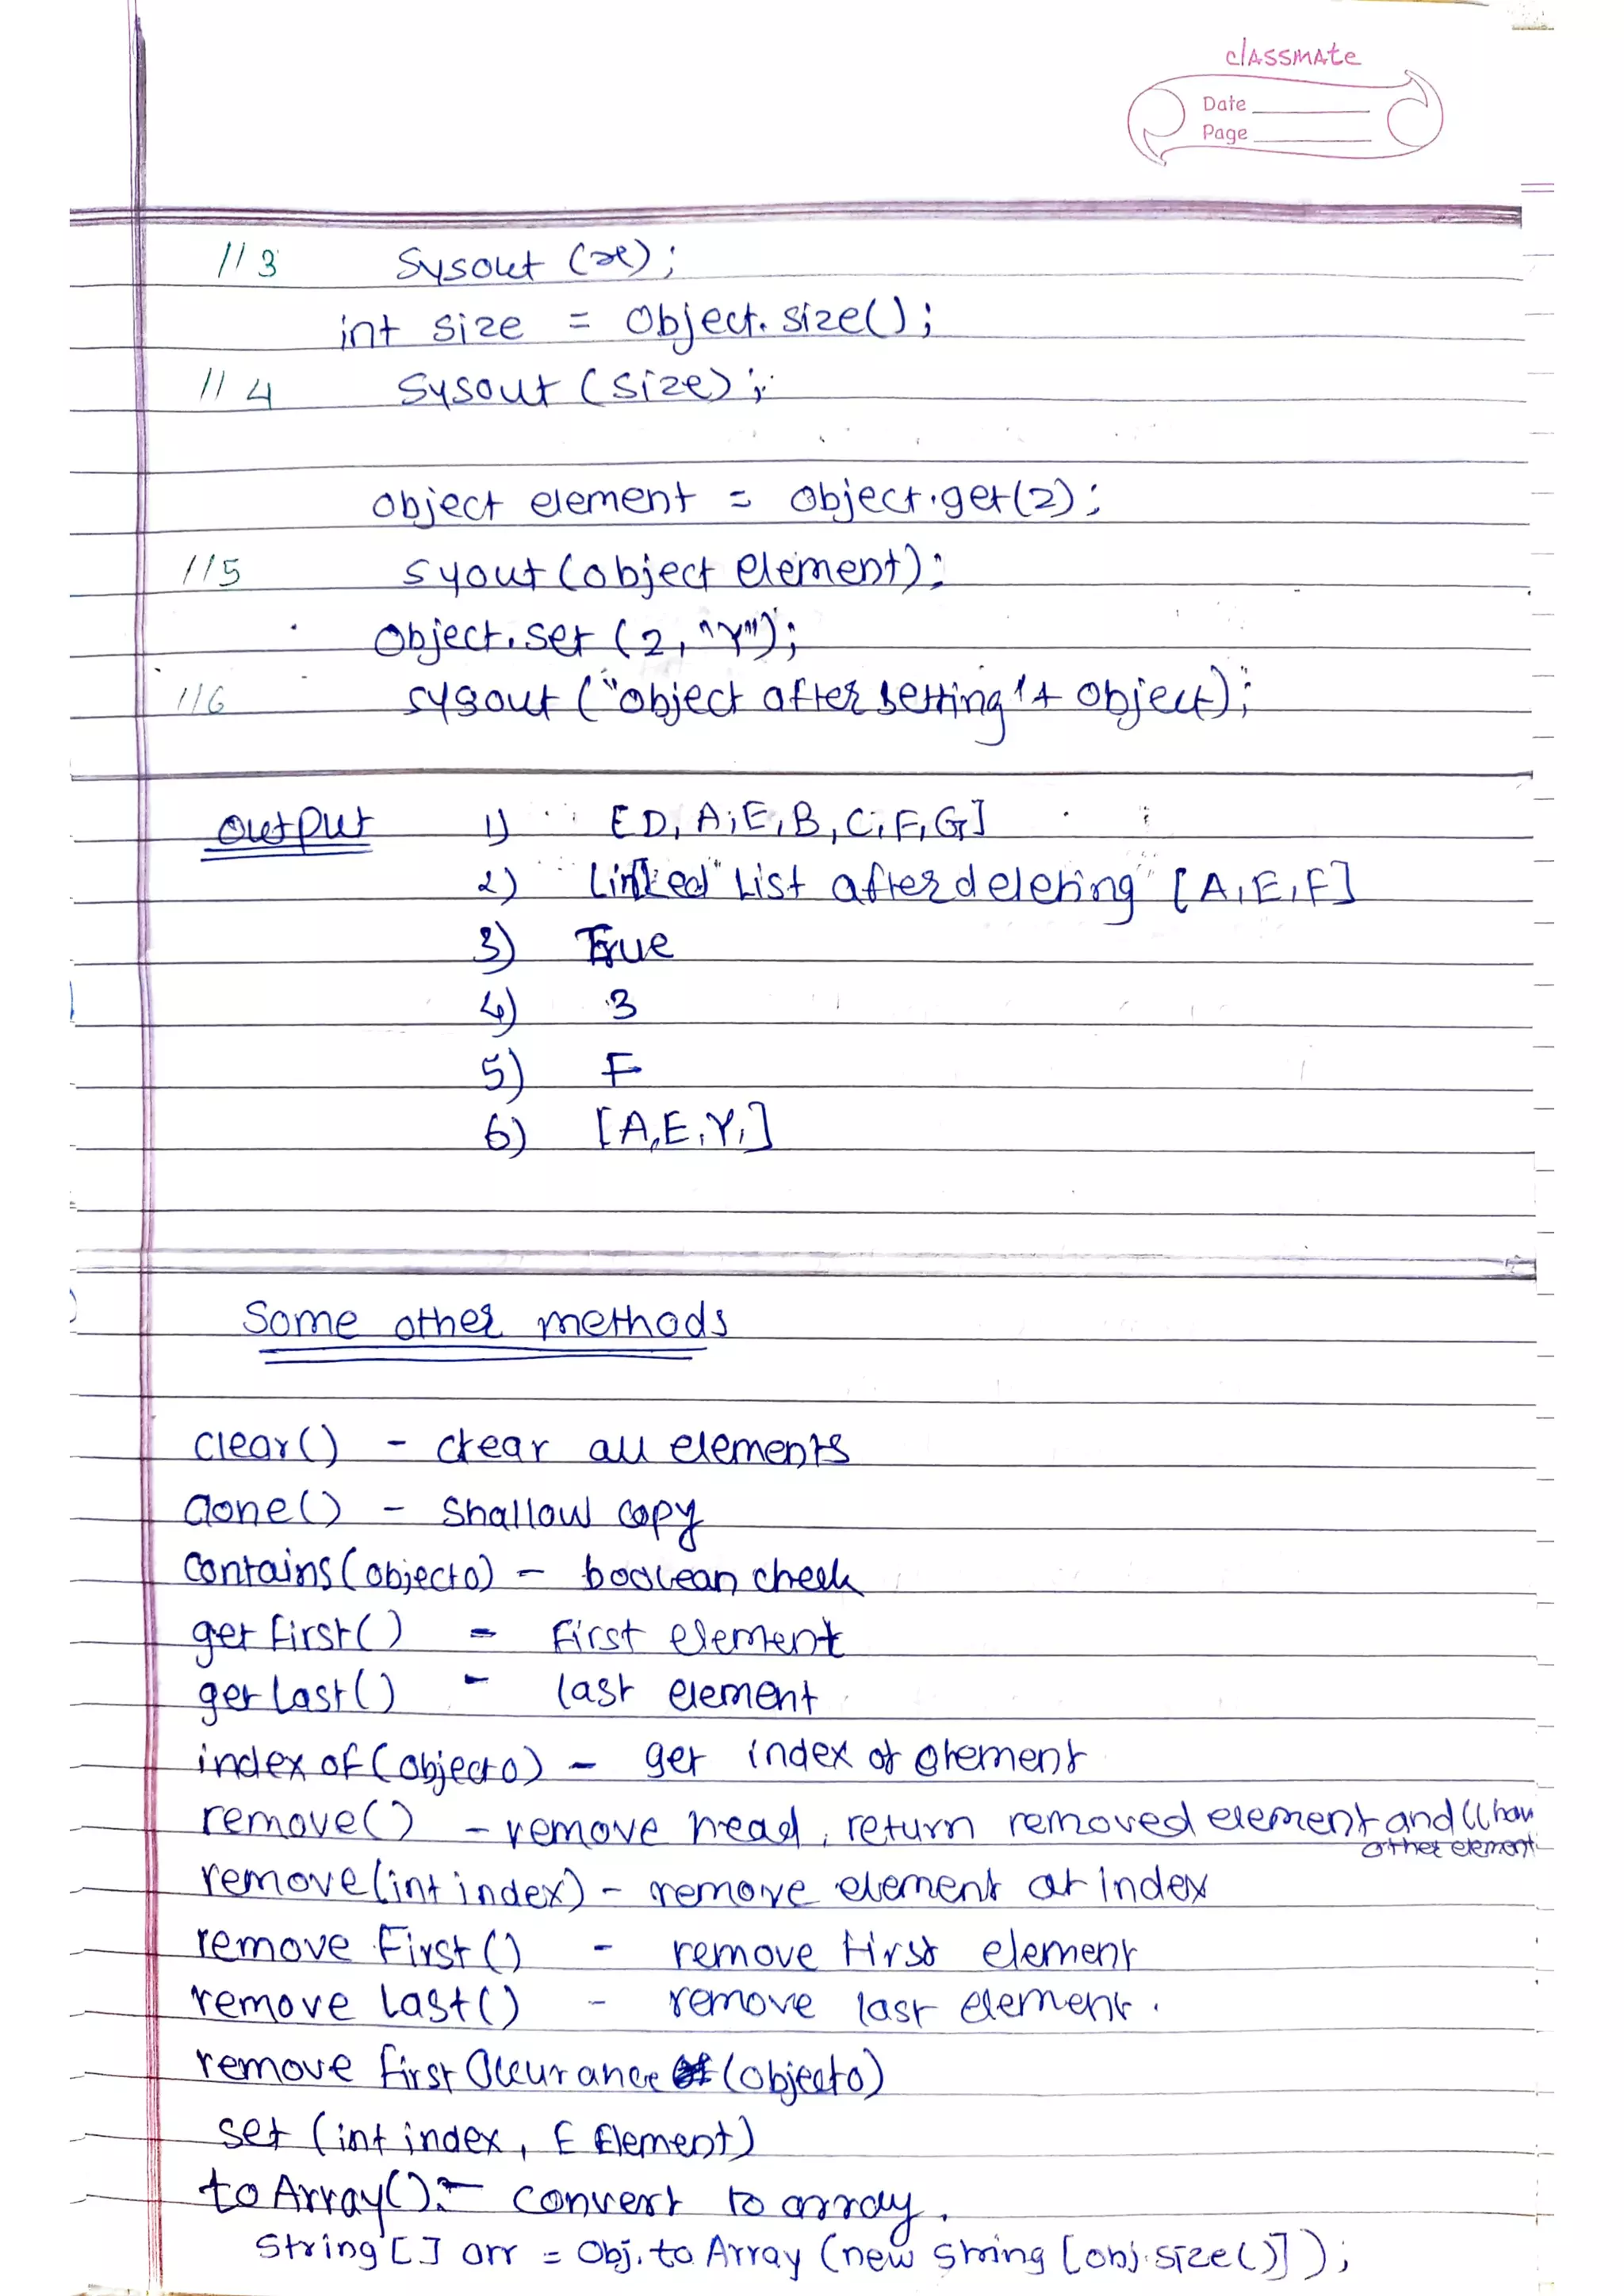 classmate
Date
Page
//3 Sysout (x);
int size = Object.size();
//4 Sysout (size);
object element = Object.get(2);
//5 syout (object element);
Object.set (2, "Y");
//6 sysout ("object after setting"+ object);
Output 1) [D, A, E, B, C, F, G]
2) Linked List after deleting [A, E, F]
3) True
4) 3
5) F
6) [A, E, Y,]
Some other methods
clear() - clear all elements
clone() - Shallow copy
Contains (object o) - boolean check
get First() - First element
get Last() - last element
index of (object o) - get index of element
remove() - remove head, return removed element and
other element
remove (int index) - remove element at index
remove First () - remove First element
remove Last() - remove last element.
remove first Occurance (object o)
set (int index, E Element)
to Array() :- convert to array.
String [] arr = Obj. to Array (new String [obj.size()]);